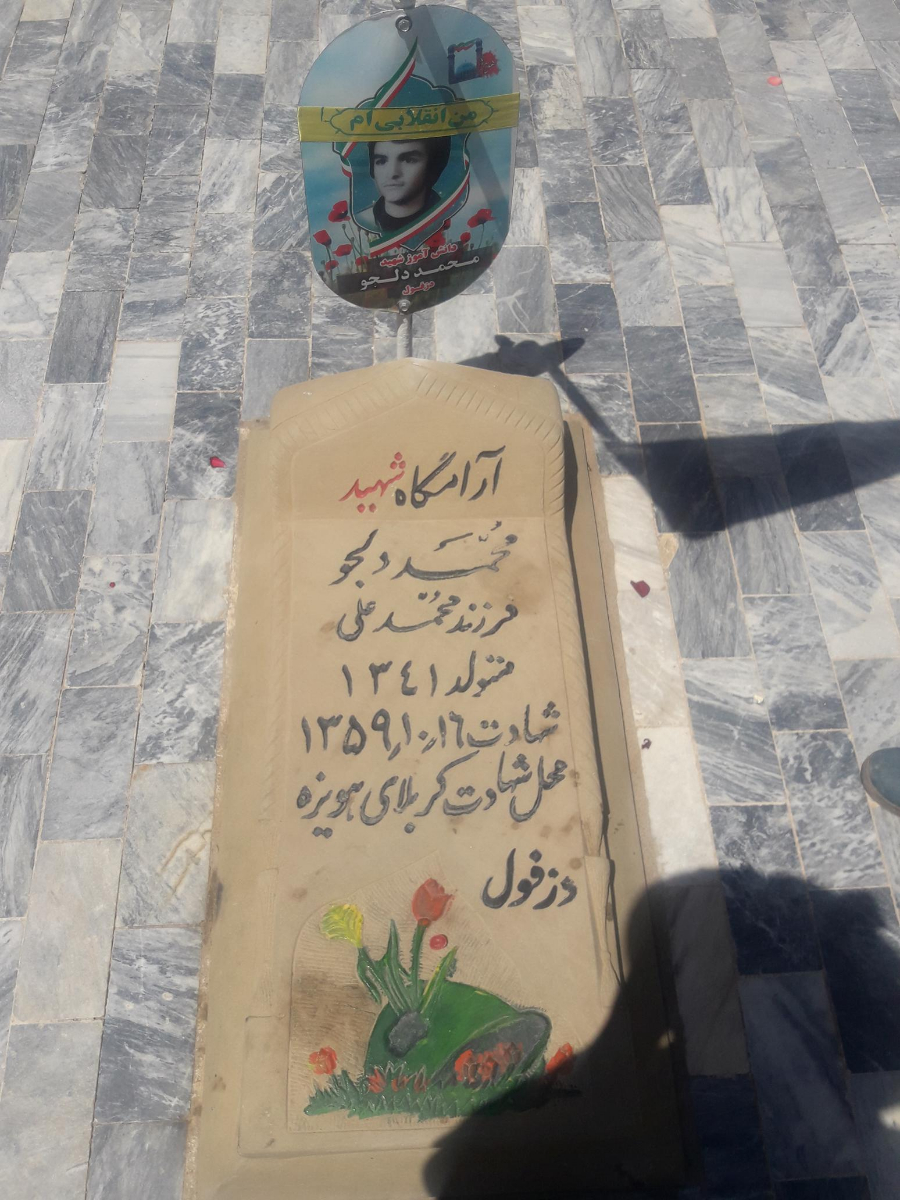 من انقلابی ام
دانش آموز شهید
محمد دلجو
دزفول
آرامگاه شهید
مُحمّد دلجو
فرزند محمّد علی
متولد ١٣٤١
شهادت ١٣٥٩٫١٠٫١٦
محل شهادت کربلای هویزه
دزفول